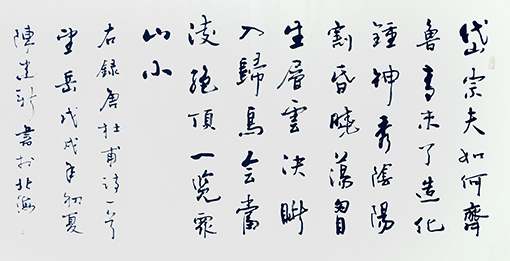 岱宗夫如何齊
魯青未了造化
鍾神秀陰陽
割昏曉蕩胷
生層雲決眦
入歸鳥會當
凌絕頂一览眾
山小
右録唐杜甫詩一首
望岳戊戌年初夏
陳建新書於北海